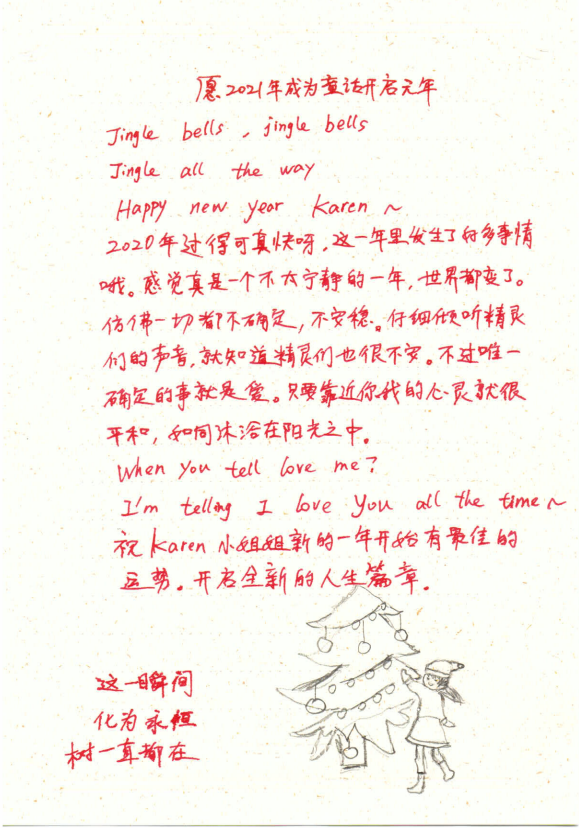 愿2021年成为童话开启元年
Jingle bells, jingle bells
Jingle all the way
Happy new year Karen ~
2020年过得可真快呀,这一年里发生了好多事情
哦。感觉真是一个不太宁静的一年,世界都变了。
仿佛一切都不确定,不安稳。仔细倾听精灵
们的声音,就知道精灵们也很不安。不过唯一
确定的事就是爱。只要靠近你我的心灵就很
平和,如同沐浴在阳光之中。
When you tell love me?
I'm telling I love you all the time ~
祝Karen小姐姐新的一年开始有最佳的
运势。开启全新的人生篇章.
这一瞬间
化为永恒
树一直都在